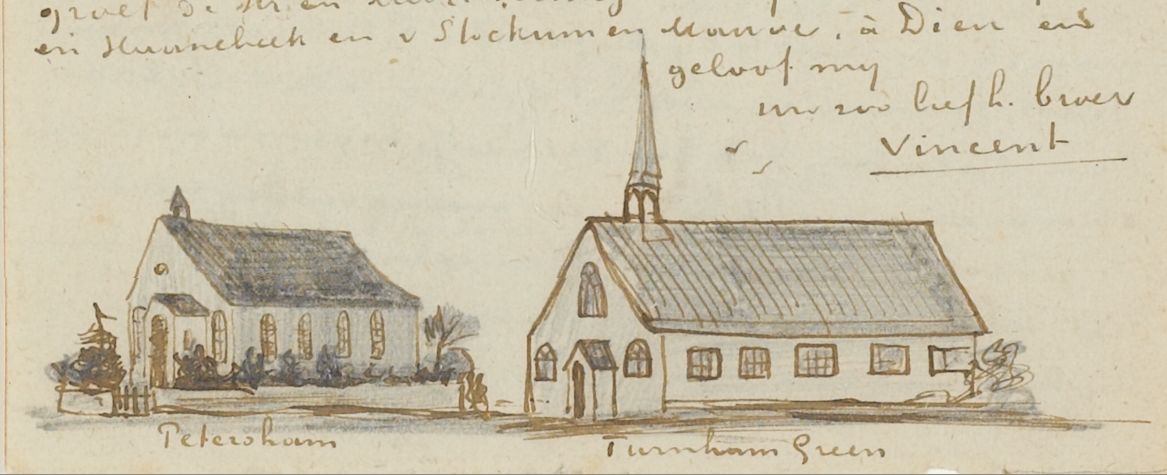 groet de
en Haanebeek en v Stockum en Mauve, à Dieu en
geloof mij
uw zoo liefh. broer
Vincent
Petersham
Turnham Green